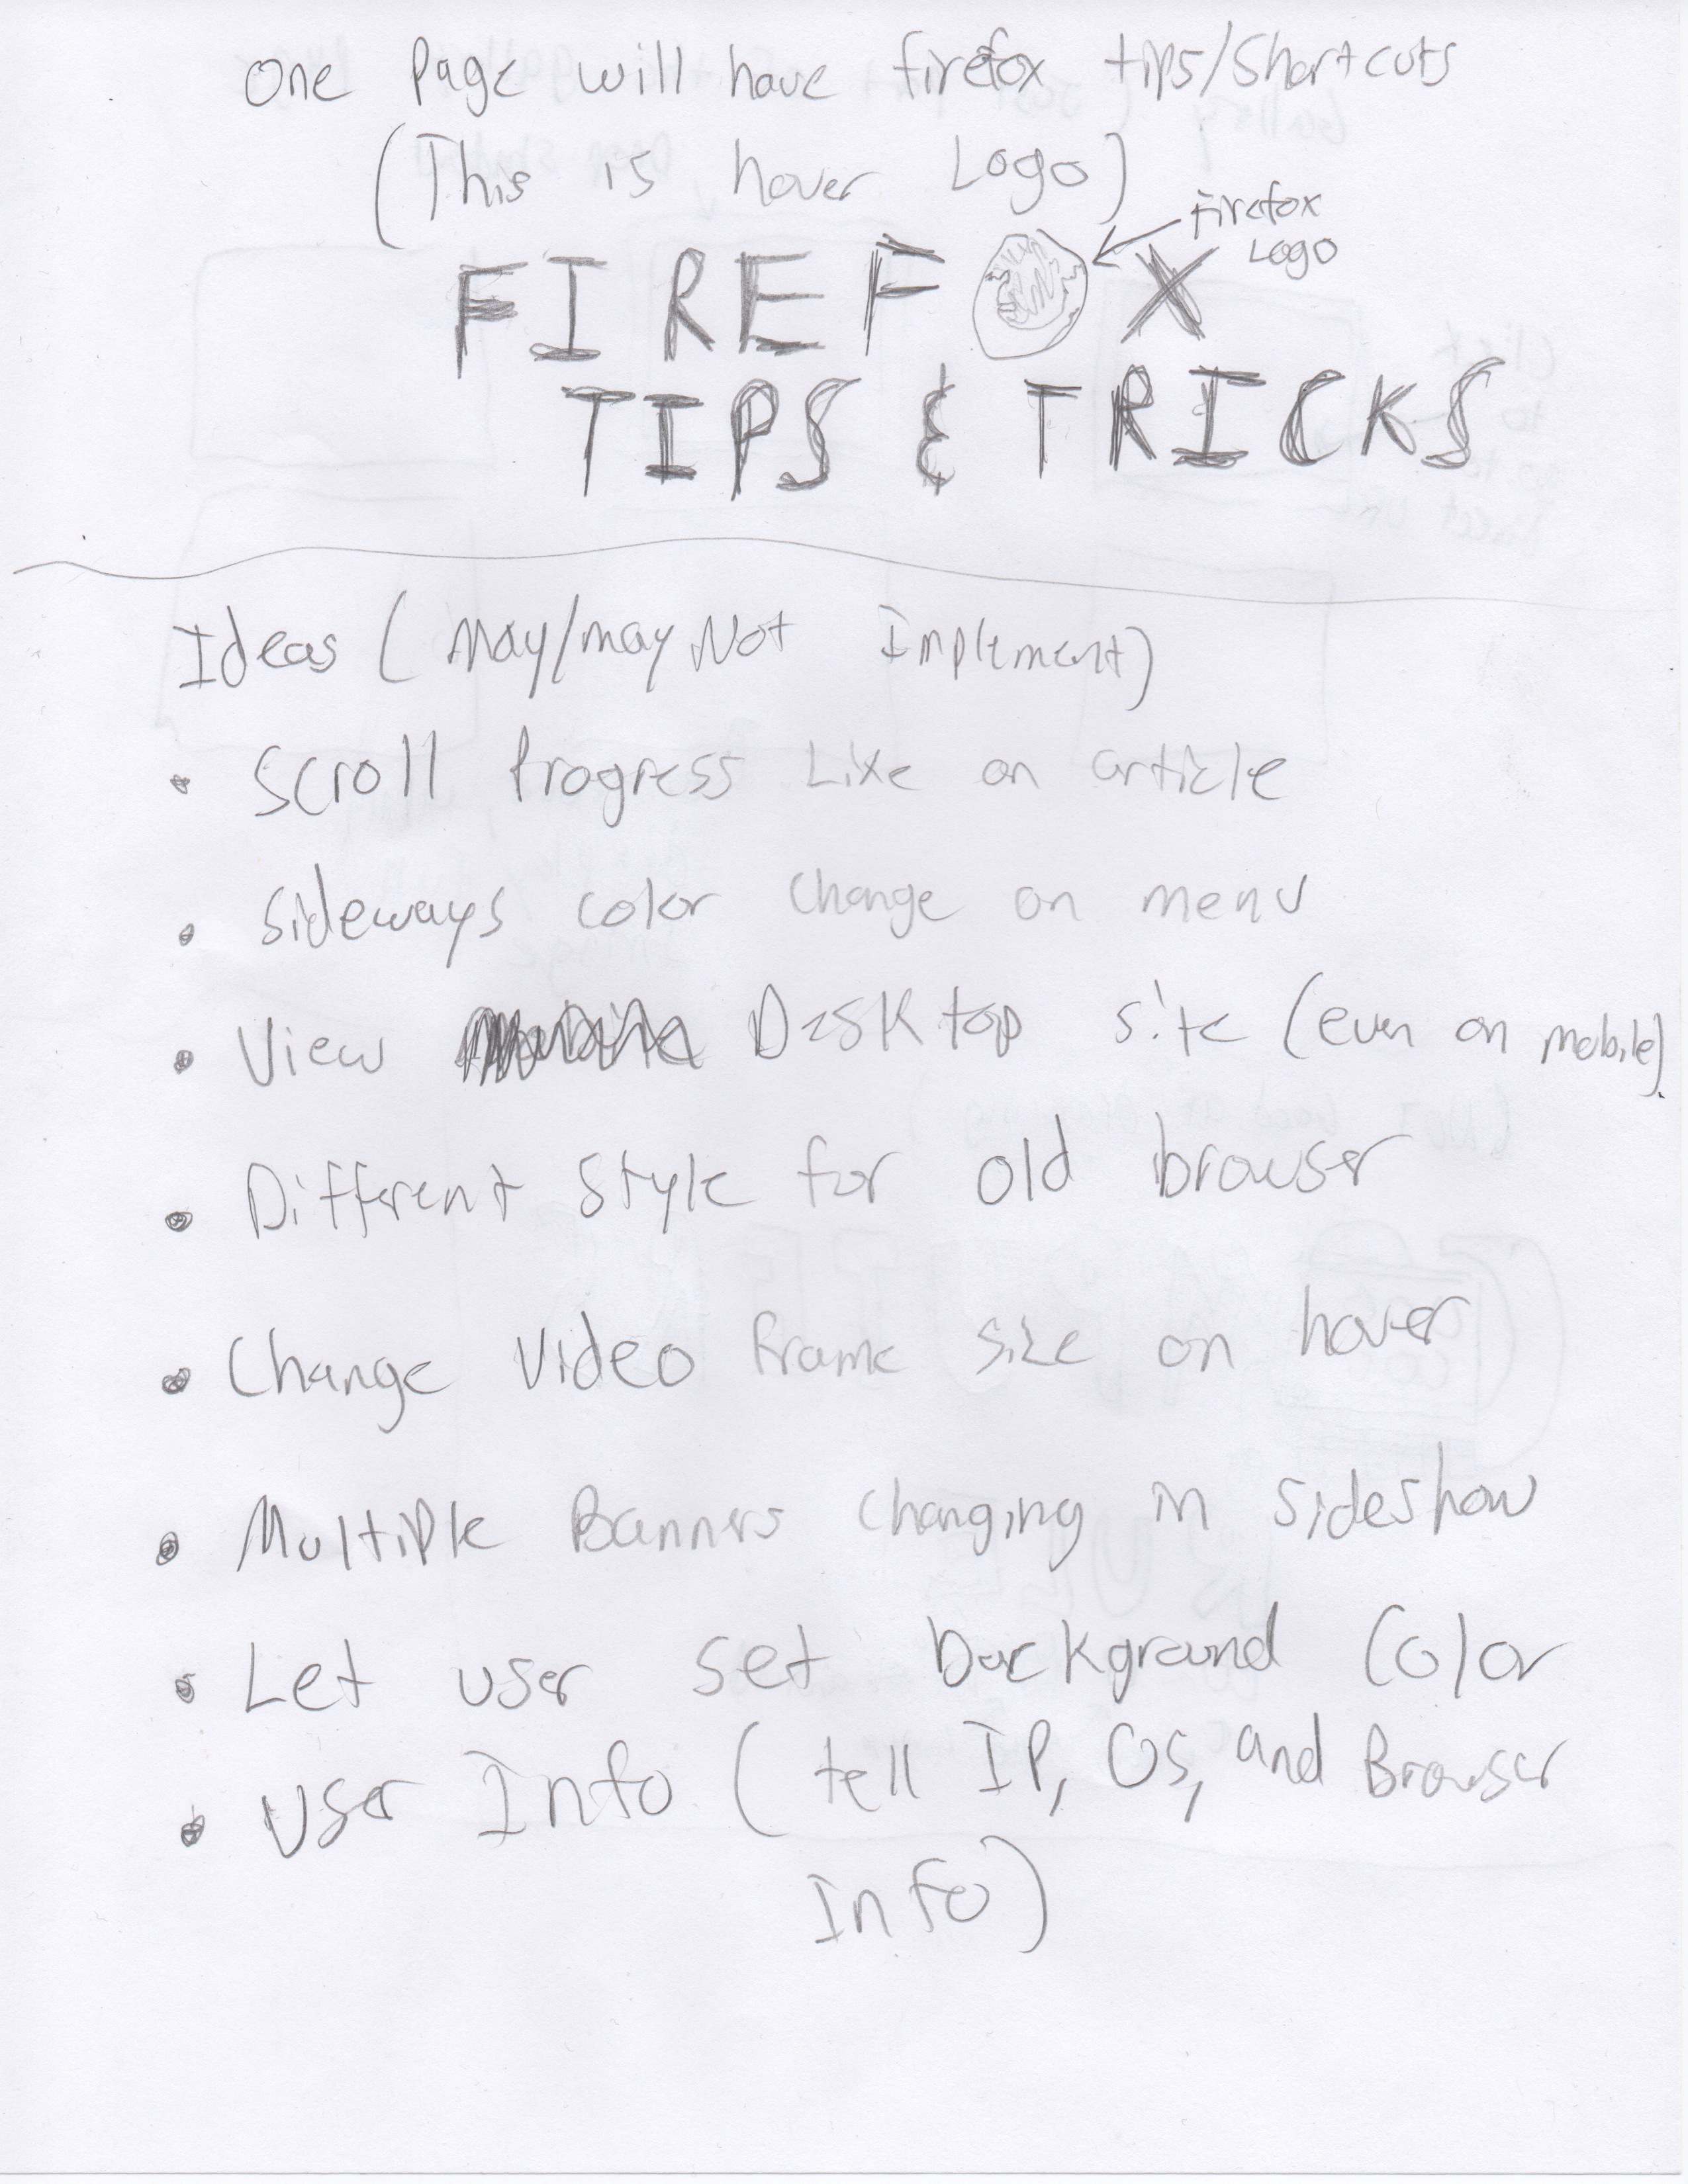 One Page will have firefox tips/Shortcuts
(This is hover Logo)
Firefox
Logo
FIREF X
TIPS & TRICKS
Ideas (May/may Not Implement)
• Scroll Progress Like an article
• Sideways color change on menu
• View Desktop site (even on mobile)
• Different Style for old browser
• Change Video Frame size on hover
• Multiple Banners changing in sideshow
• Let user set background Color
• User Info (tell IP, OS, and Browser
Info)